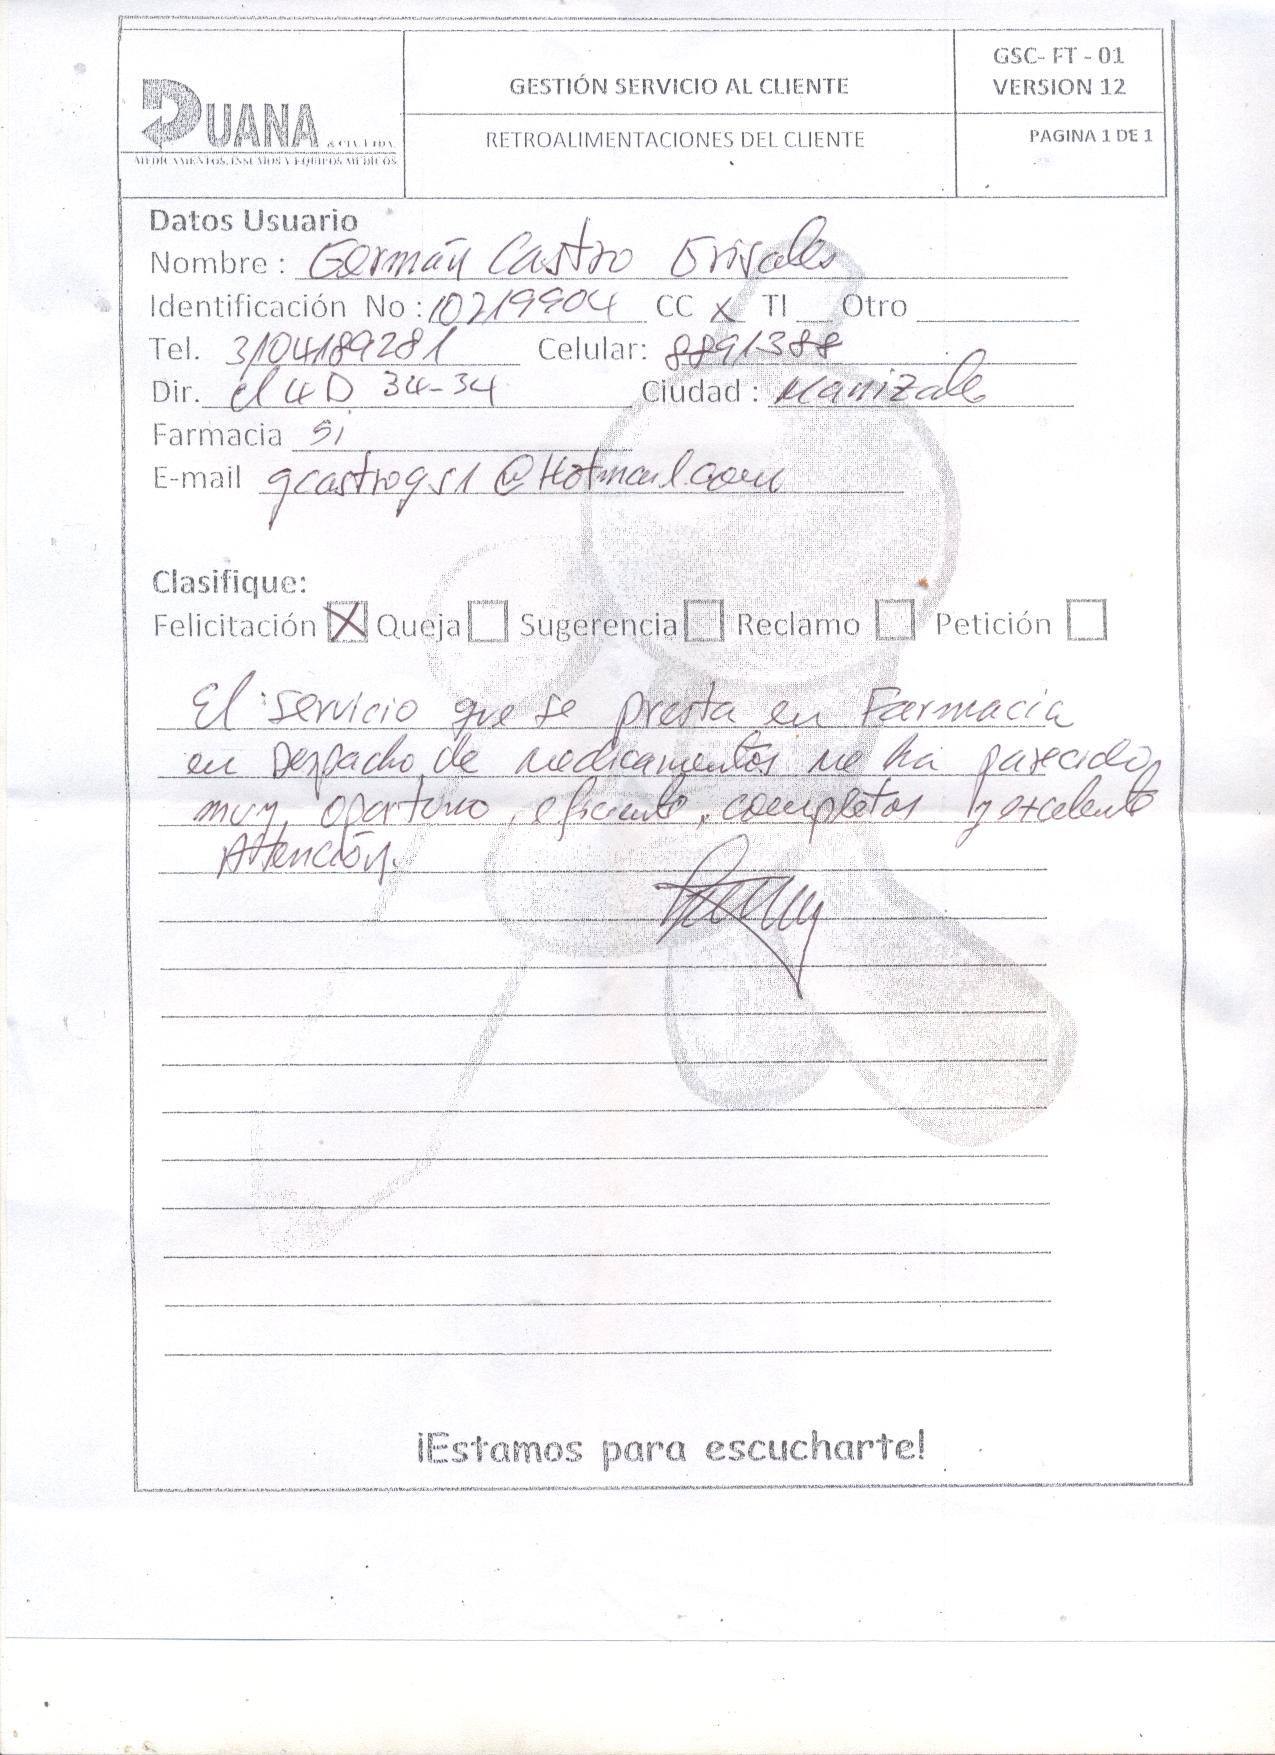 DUANA & CIA. LTDA
MEDICAMENTOS, INSUMOS Y EQUIPOS MEDICOS
GESTIÓN SERVICIO AL CLIENTE
RETROALIMENTACIONES DEL CLIENTE
GSC- FT - 01
VERSION 12
PAGINA 1 DE 1
Datos Usuario
Nombre : Germán Castro Grisales
Identificación No : 10219904 CC x TI Otro
Tel. 3104189281 Celular: 8891388
Dir. cl 4D 34-34 Ciudad : Manizales
Farmacia si
E-mail gcastrogs1@Hotmail.com
Clasifique:
Felicitación X Queja Sugerencia Reclamo Petición
El servicio que se presta en Farmacia
en Despacho de medicamentos me ha parecido
muy oportuno, eficiente, completos y excelente
Atención.
¡Estamos para escucharte!